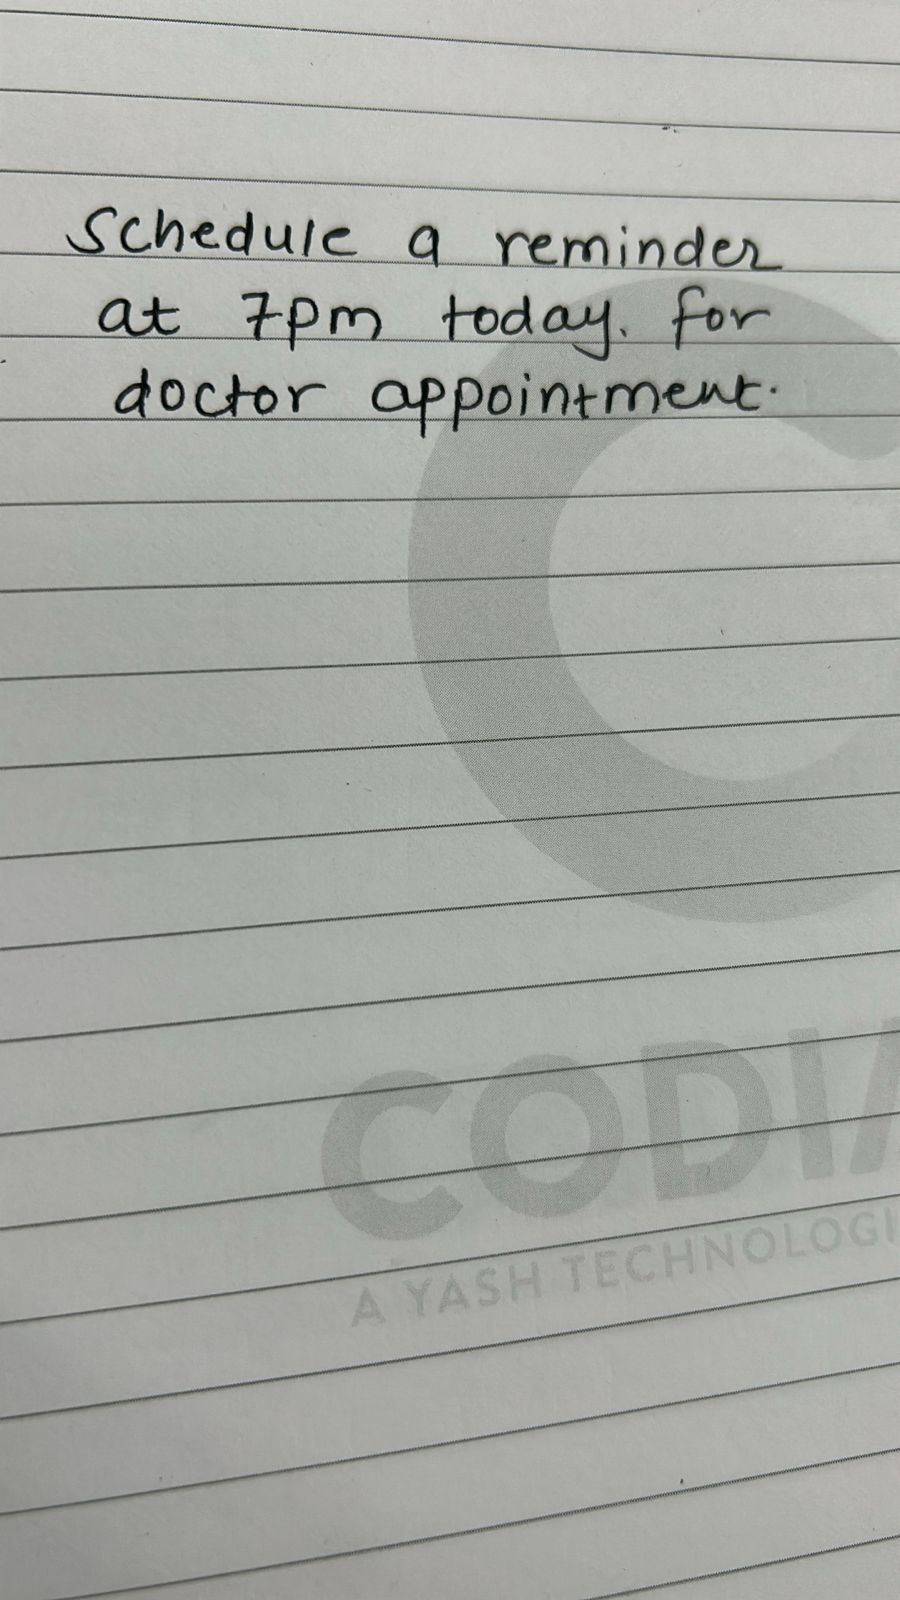 Schedule a reminder
at 7pm today. for
doctor appointment.
CODIA
A YASH TECHNOLOGI